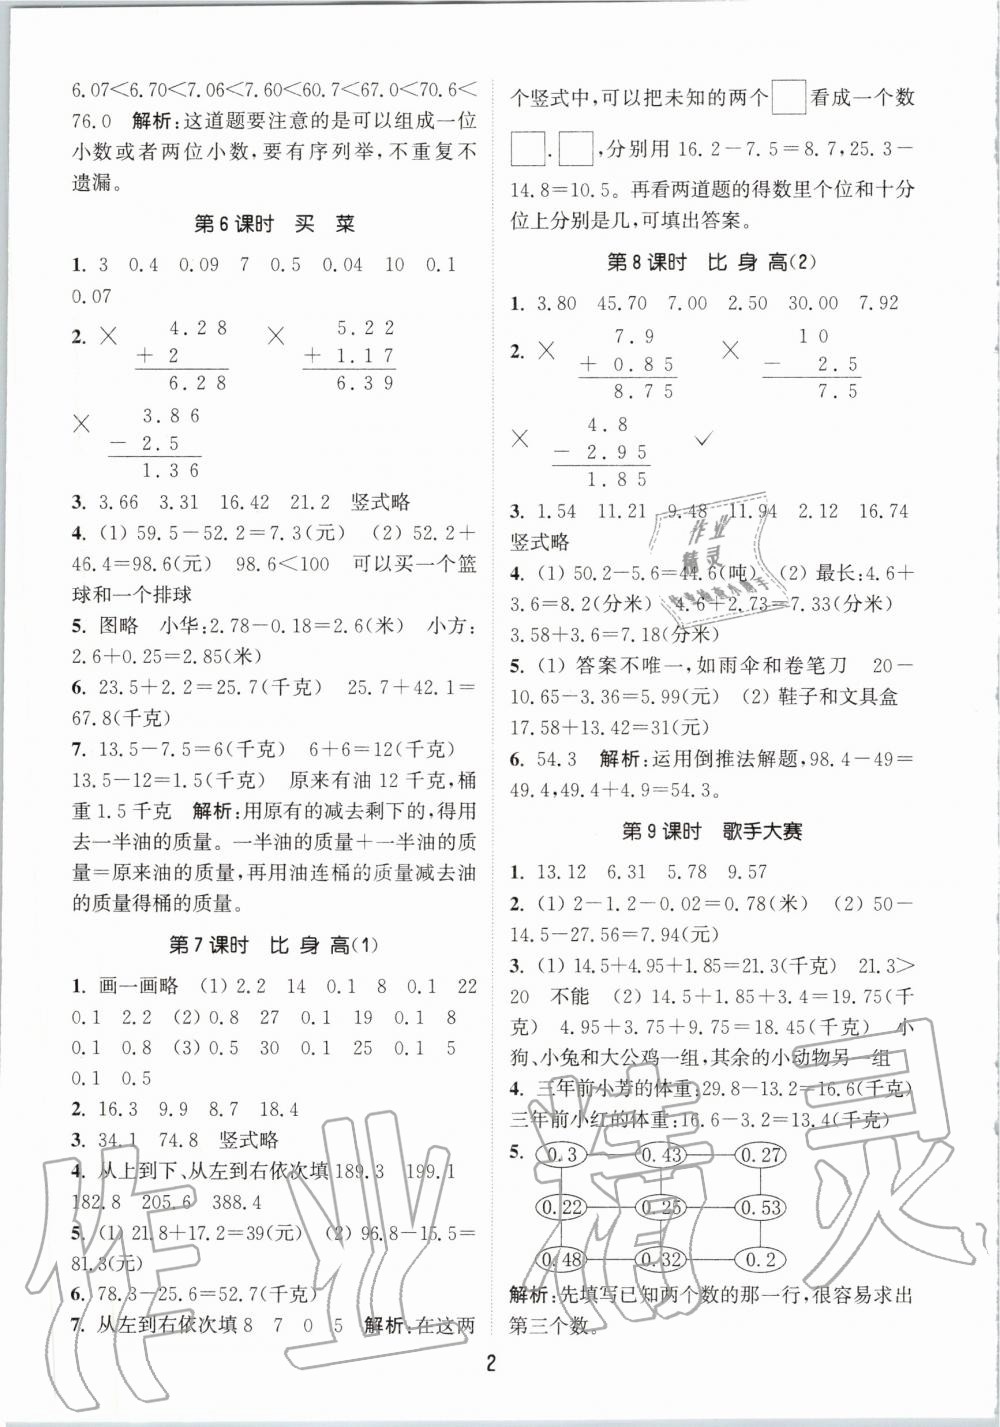 6.07<6.70<7.06<7.60<60.7<67.0<70.6<
76.0 解析:这道题要注意的是可以组成一位
小数或者两位小数，要有序列举，不重复不
遗漏。
第6课时 买 菜
1. 3 0.4 0.09 7 0.5 0.04 10 0.1
0.07
2. × 4.28 × 5.22
+ 2 + 1.17
6.28 6.39
× 3.86
- 2.5
1.36
3. 3.66 3.31 16.42 21.2 竖式略
4. (1) 59.5-52.2=7.3(元) (2) 52.2+
46.4=98.6(元) 98.6<100 可以买一个篮
球和一个排球
5. 图略 小华:2.78-0.18=2.6(米) 小方:
2.6+0.25=2.85(米)
6. 23.5+2.2=25.7(千克) 25.7+42.1=
67.8(千克)
7. 13.5-7.5=6(千克) 6+6=12(千克)
13.5-12=1.5(千克) 原来有油12千克,桶
重1.5千克 解析:用原有的减去剩下的,得用
去一半油的质量。一半油的质量+一半油的质量
=原来油的质量,再用油连桶的质量减去油
的质量得桶的质量。
第7课时 比 身 高(1)
1. 画一画略 (1) 2.2 14 0.1 8 0.1 22
0.1 2.2 (2) 0.8 27 0.1 19 0.1 8
0.1 0.8 (3) 0.5 30 0.1 25 0.1 5
0.1 0.5
2. 16.3 9.9 8.7 18.4
3. 34.1 74.8 竖式略
4. 从上到下、从左到右依次填189.3 199.1
182.8 205.6 388.4
5. (1) 21.8+17.2=39(元) (2) 96.8-15.5=
81.3(元)
6. 78.3-25.6=52.7(千克)
7. 从左到右依次填8 7 0 5 解析:在这两
个竖式中,可以把未知的两个□看成一个数
□.□,分别用16.2-7.5=8.7,25.3-
14.8=10.5。再看两道题的得数里个位和十分
位上分别是几,可填出答案。
第8课时 比 身 高(2)
1. 3.80 45.70 7.00 2.50 30.00 7.92
2. × 7.9 × 10
+ 0.85 - 2.5
8.75 7.5
× 4.8 ✓
- 2.95
1.85
3. 1.54 11.21 9.48 11.94 2.12 16.74
竖式略
4. (1) 50.2-5.6=44.6(吨) (2) 最长:4.6+
3.6=8.2(分米) 4.6+2.73=7.33(分米)
3.58+3.6=7.18(分米)
5. (1) 答案不唯一,如雨伞和卷笔刀 20-
10.65-3.36=5.99(元) (2) 鞋子和文具盒
17.58+13.42=31(元)
6. 54.3 解析:运用倒推法解题,98.4-49=
49.4,49.4+4.9=54.3。
第9课时 歌手大赛
1. 13.12 6.31 5.78 9.57
2. (1) 2-1.2-0.02=0.78(米) (2) 50-
14.5-27.56=7.94(元)
3. (1) 14.5+4.95+1.85=21.3(千克) 21.3>
20 不能 (2) 14.5+1.85+3.4=19.75(千
克) 4.95+3.75+9.75=18.45(千克) 小
狗、小兔和大公鸡一组,其余的小动物另一组
4. 三年前小芳的体重:29.8-13.2=16.6(千克)
三年前小红的体重:16.6-3.2=13.4(千克)
5. 0.3 0.43 0.27
0.22 0.25 0.53
0.48 0.32 0.2
解析:先填写已知两个数的那一行,很容易求出
第三个数。
2
作业精灵
作业
精灵